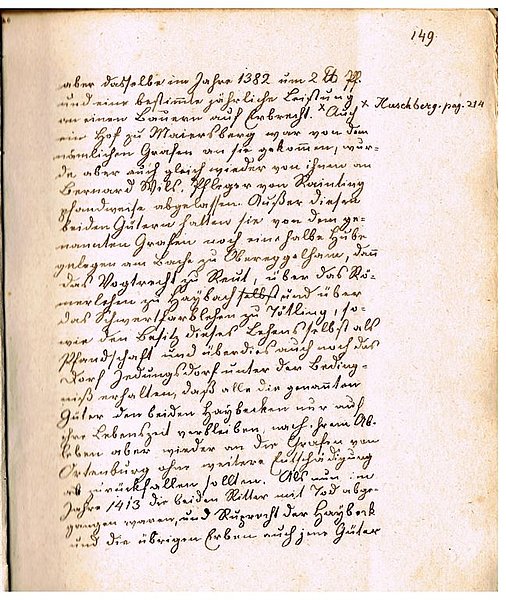 149.
aber dasselbe im Jahre 1382 um 2 ℔ Pf.
und eine bestimmte jährliche Leistung
an einen Bauern auf Erbrecht. × Auch
× Huschberg. pag. 214
ein Hof zu Maiersberg war von dem
nämlichen Grafen an sie gekommen, wur-
de aber auch gleich wieder von ihnen an
Bernard Wils, Pfleger von Rainting
pfandweise abgelassen. Außer diesen
beiden Gütern hatten sie von dem ge-
nannten Grafen noch eine halbe Hube
gelegen am Bache zu Obereggelham, dan̄
das Vogtrecht zu Reut, über das Rö-
merlehen zu Haybach selbst und über
das Schwerthardslehen zu Tutling, so-
wie den Besitz dieses Lehens selbst als
Pfandschaft und überdies auch noch das
Dorf Indungsdorf unter der Beding-
niß erhalten, daß alle die genannten
Güter den beiden Haybecken nur auf
ihre Lebenszeit verbleiben, nach ihrem Ab-
leben aber wieder an die Grafen von
Ortenburg ohne weitere Entschädigung
zurückfallen sollten. Als nun im
Jahre 1413 die beiden Ritter mit Tod abge-
gangen waren, und Ruprecht der Haybeck
und die übrigen Erben auch jene Güter